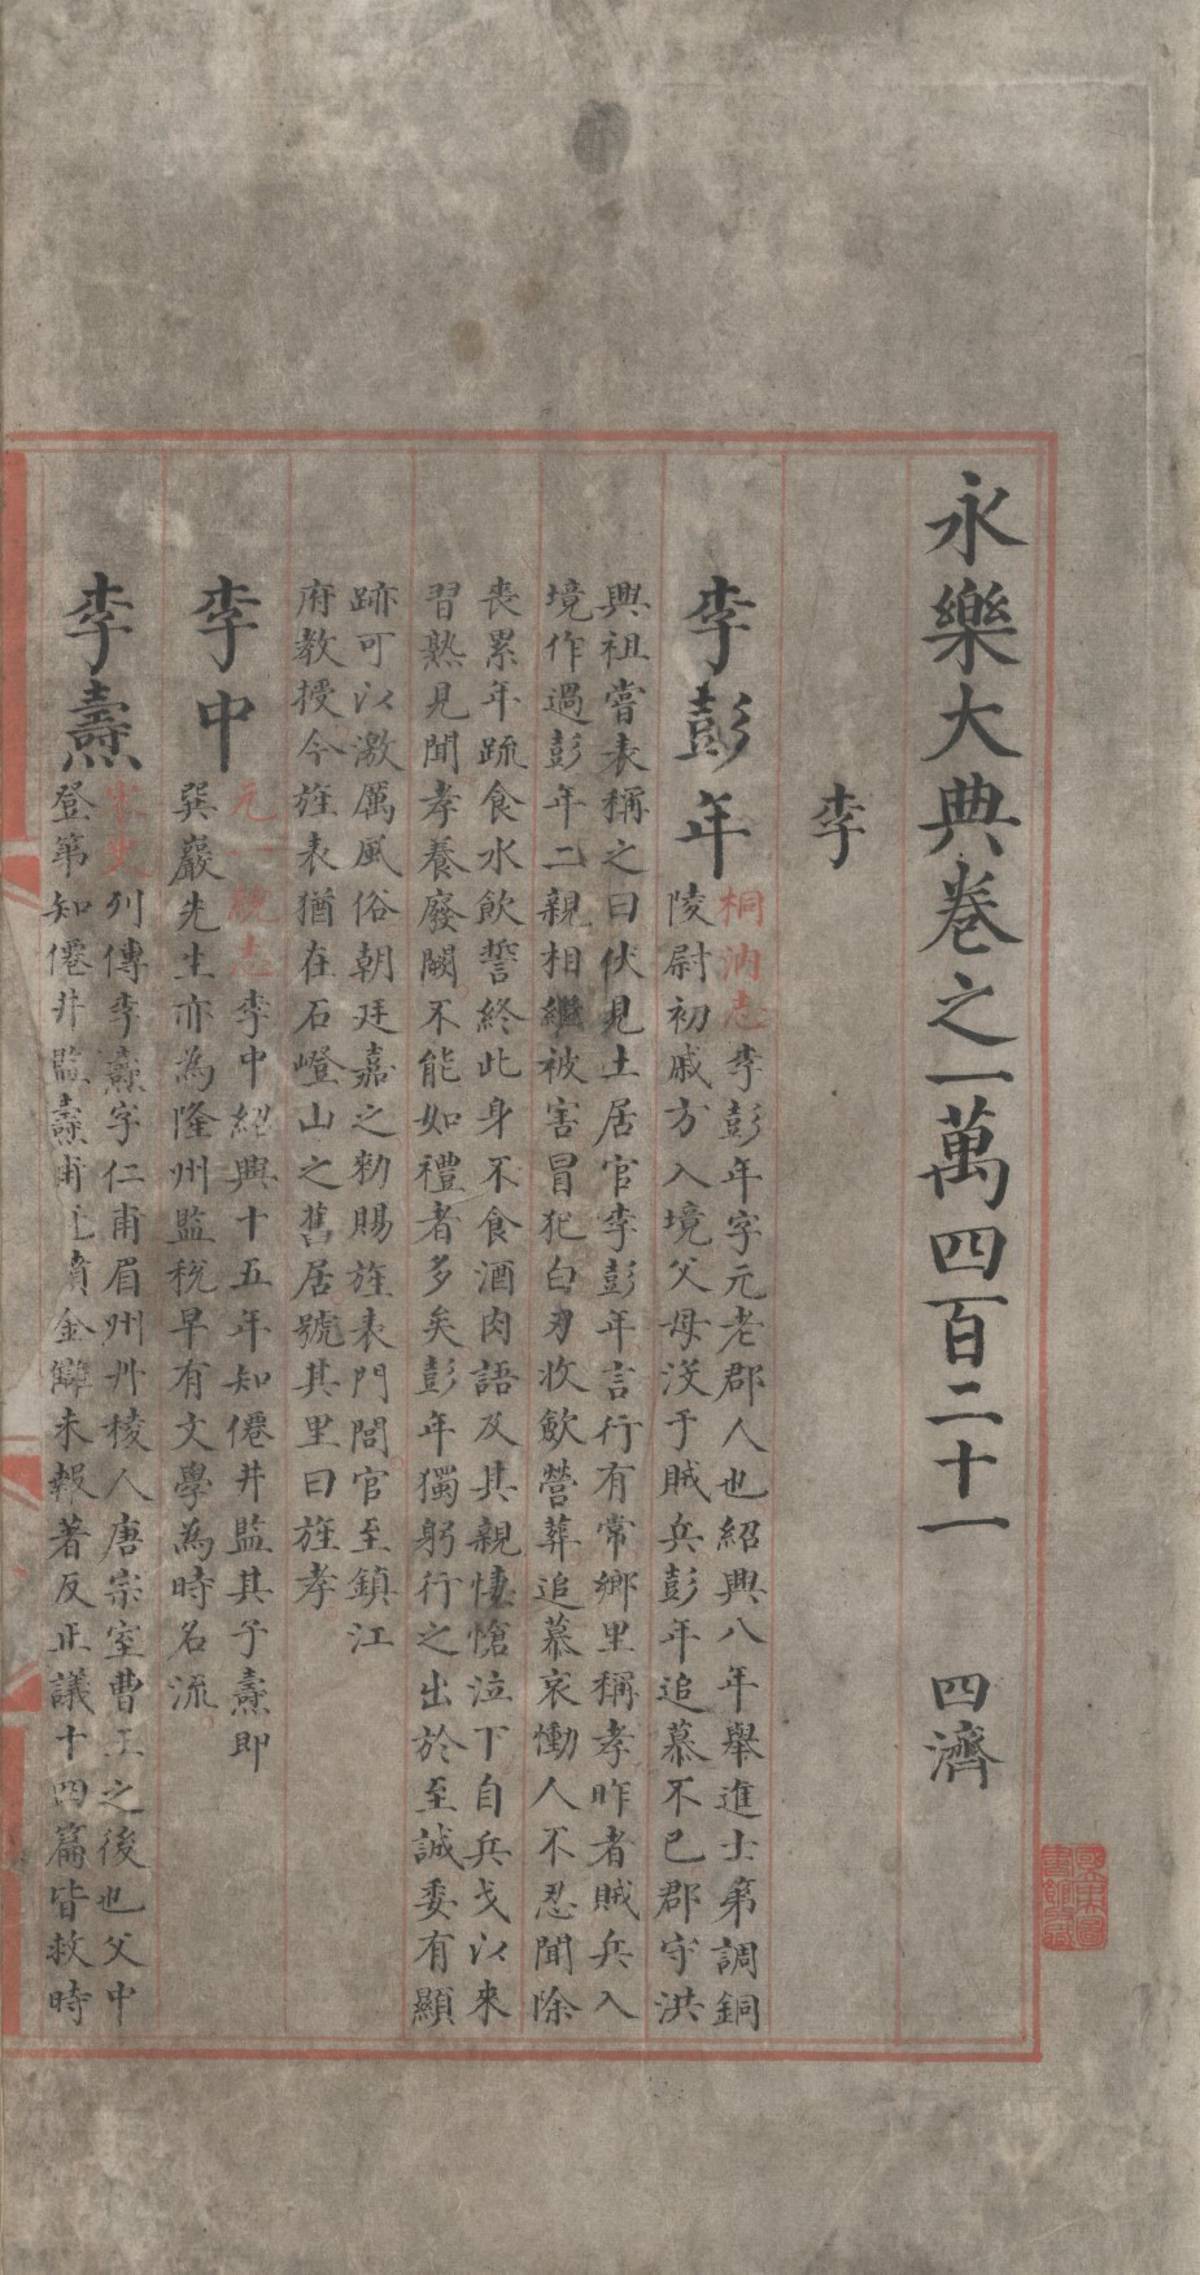 永樂大典卷之一萬四百二十一 四濟
李
李彭年
桐汭志李彭年字元老郡人也紹興八年舉進士第調銅
陵尉初戚方入境父母沒于賊兵彭年追慕不已郡守洪
興祖嘗表稱之曰伏見土居官李彭年言行有常鄉里稱孝昨者賊兵入
境作過彭年二親相繼被害冒犯白刃收斂營葬追慕哀慟人不忍聞除
喪累年疏食水飲誓終此身不食酒肉語及其親悽愴泣下自兵戈以來
習熟見聞孝養廢闕不能如禮者多矣彭年獨躬行之出於至誠委有顯
跡可以激厲風俗朝廷嘉之勑賜旌表門閭官至鎮江
府教授今旌表猶在石嶝山之舊居號其里曰旌孝
李中
元一統志李中紹興十五年知僊井監其子燾即
巽巖先生亦為隆州監稅早有文學為時名流
李燾
宋史列傳李燾字仁甫眉州丹稜人唐宗室曹王之後也父中
登第知僊井監燾甫冠憤金讎未報著反正議十四篇皆救時